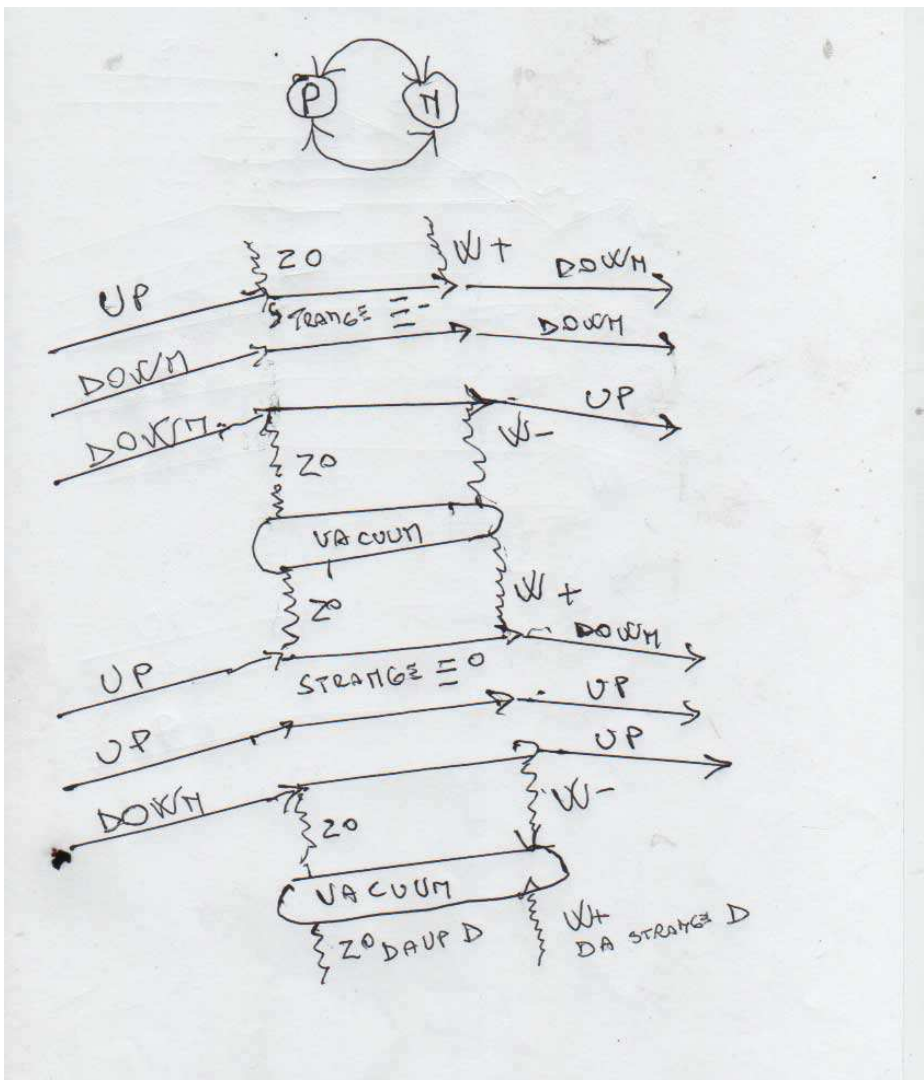 P N
Z0 W+
UP DOWN
STRANGE Ξ-
DOWN DOWN
DOWN UP
W-
Z0
VACUUM
Z0 W+
UP STRANGE Ξ0 DOWN
UP UP
DOWN UP
Z0 W-
VACUUM
Z0 DA UP D W+
DA STRANGE D